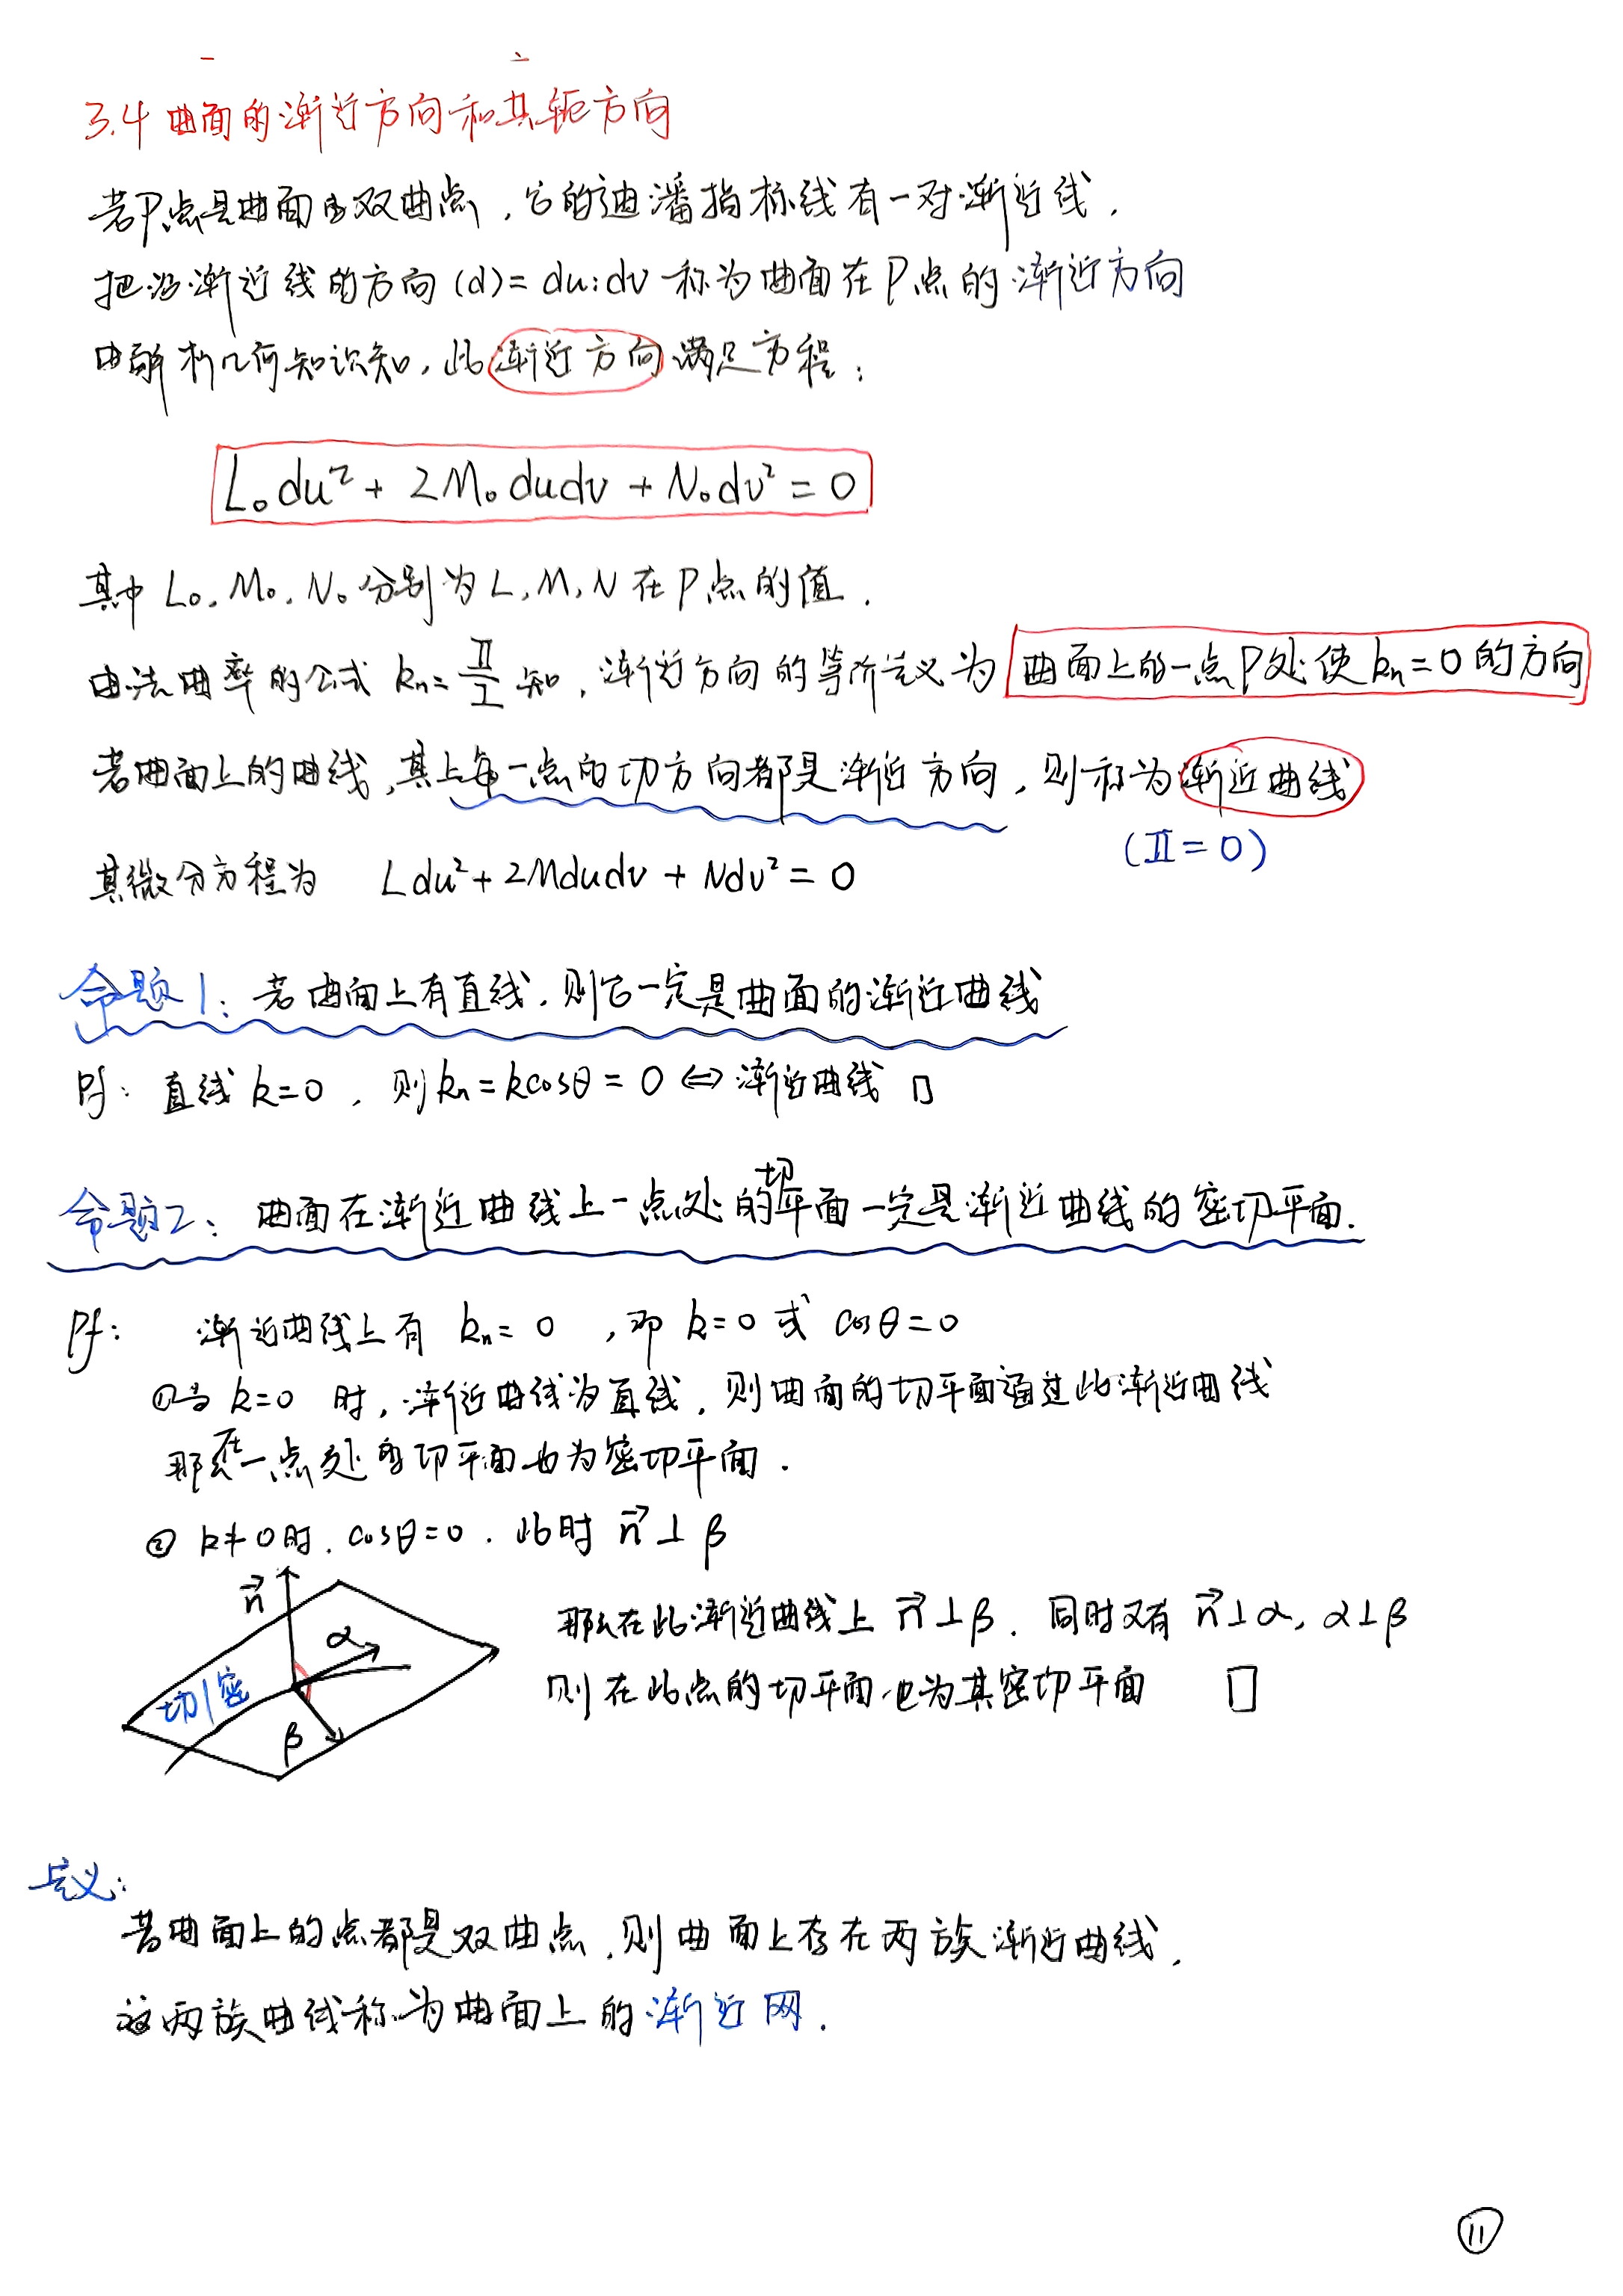 3.4 曲面的渐近方向和共轭方向
若P点是曲面的双曲点，它的迪潘指标线有一对渐近线.
把沿渐近线的方向 (d)= du:dv 称为曲面在P点的渐近方向
由解析几何知识知，此渐近方向满足方程：
L₀du² + 2M₀dudv + N₀dv² = 0
其中 L₀, M₀, N₀ 分别为 L, M, N 在 P 点的值.
由法曲率的公式 kₙ = Ⅱ/Ⅰ 知，渐近方向的等价定义为 曲面上的一点P处使 kₙ=0 的方向
若曲面上的曲线,其上每一点的切方向都是渐近方向，则称为渐近曲线
(Ⅱ=0)
其微分方程为 Ldu² + 2Mdudv + Ndv² = 0
命题1：若曲面上有直线，则它一定是曲面的渐近曲线
Pf：直线 k=0，则 kₙ = kcosθ = 0 ⇔ 渐近曲线 □
命题2：曲面在渐近曲线上一点处的切平面一定是渐近曲线的密切平面.
Pf： 渐近曲线上有 kₙ = 0，即 k=0 或 cosθ=0
① 当 k=0 时，渐近曲线为直线，则曲面的切平面通过此渐近曲线
那么在一点处的切平面也为密切平面.
② k≠0时. cosθ=0. 此时 n⃗⊥β
n⃗
α
切/密
β
那么在此渐近曲线上 n⃗⊥β. 同时又有 n⃗⊥α, α⊥β
则在此点的切平面也为其密切平面 □
定义：
若曲面上的点都是双曲点，则曲面上存在两族渐近曲线，
这两族曲线称为曲面上的渐近网.
11